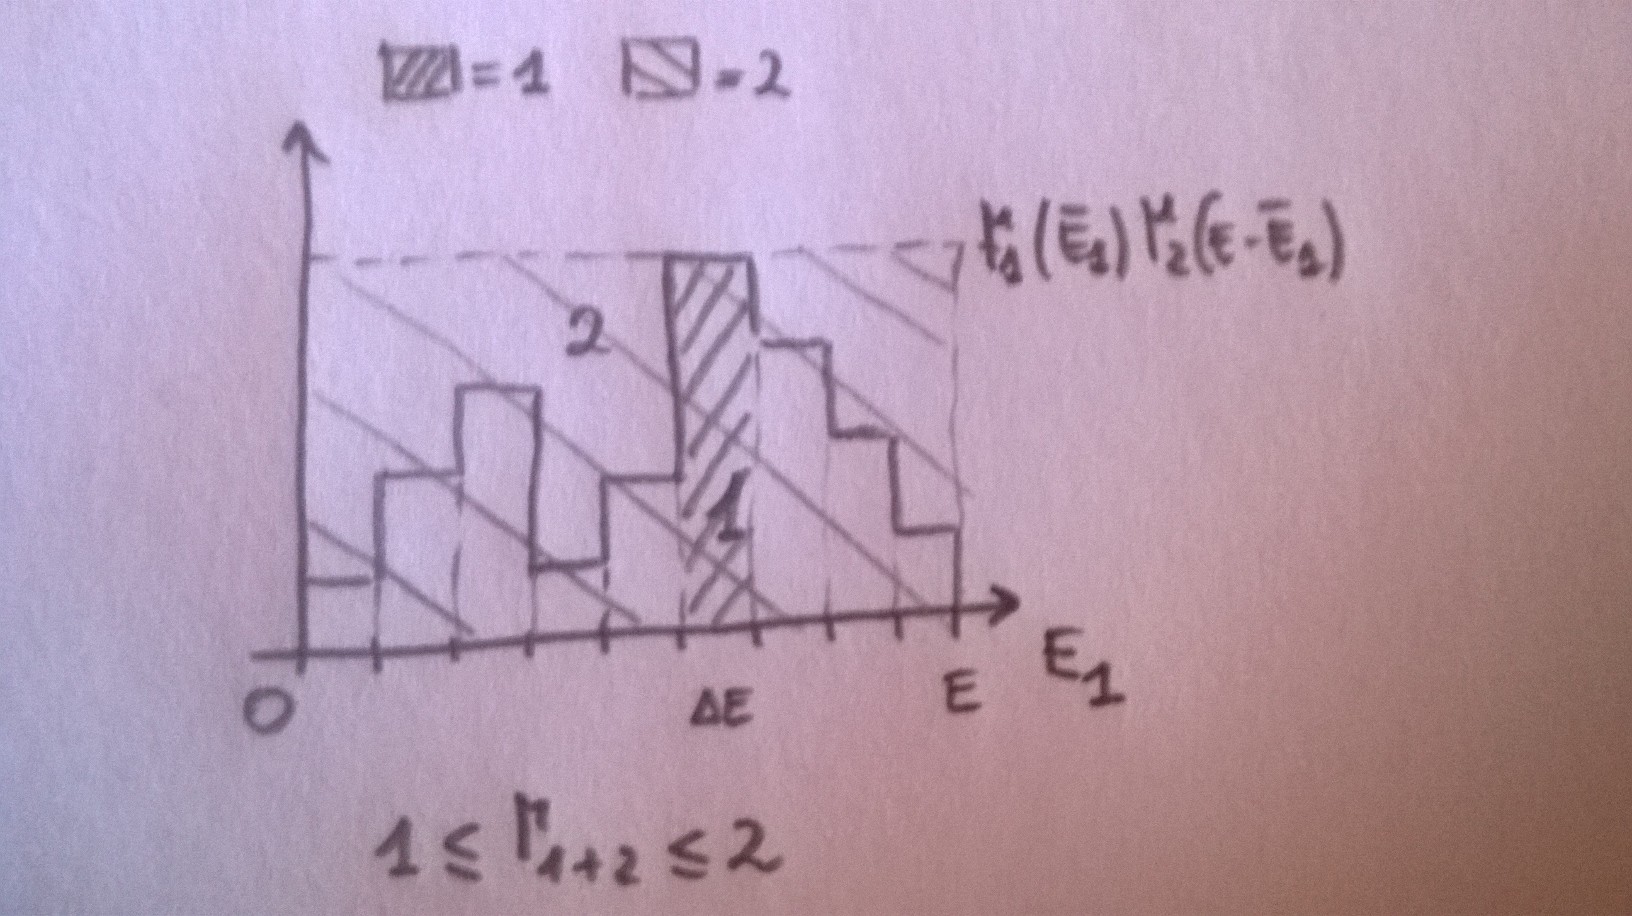 = 1 = 2
Γ₁(Ē₁) Γ₂(E - Ē₁)
2
1
0 ΔE E E₁
1 ≤ Γ₁₊₂ ≤ 2